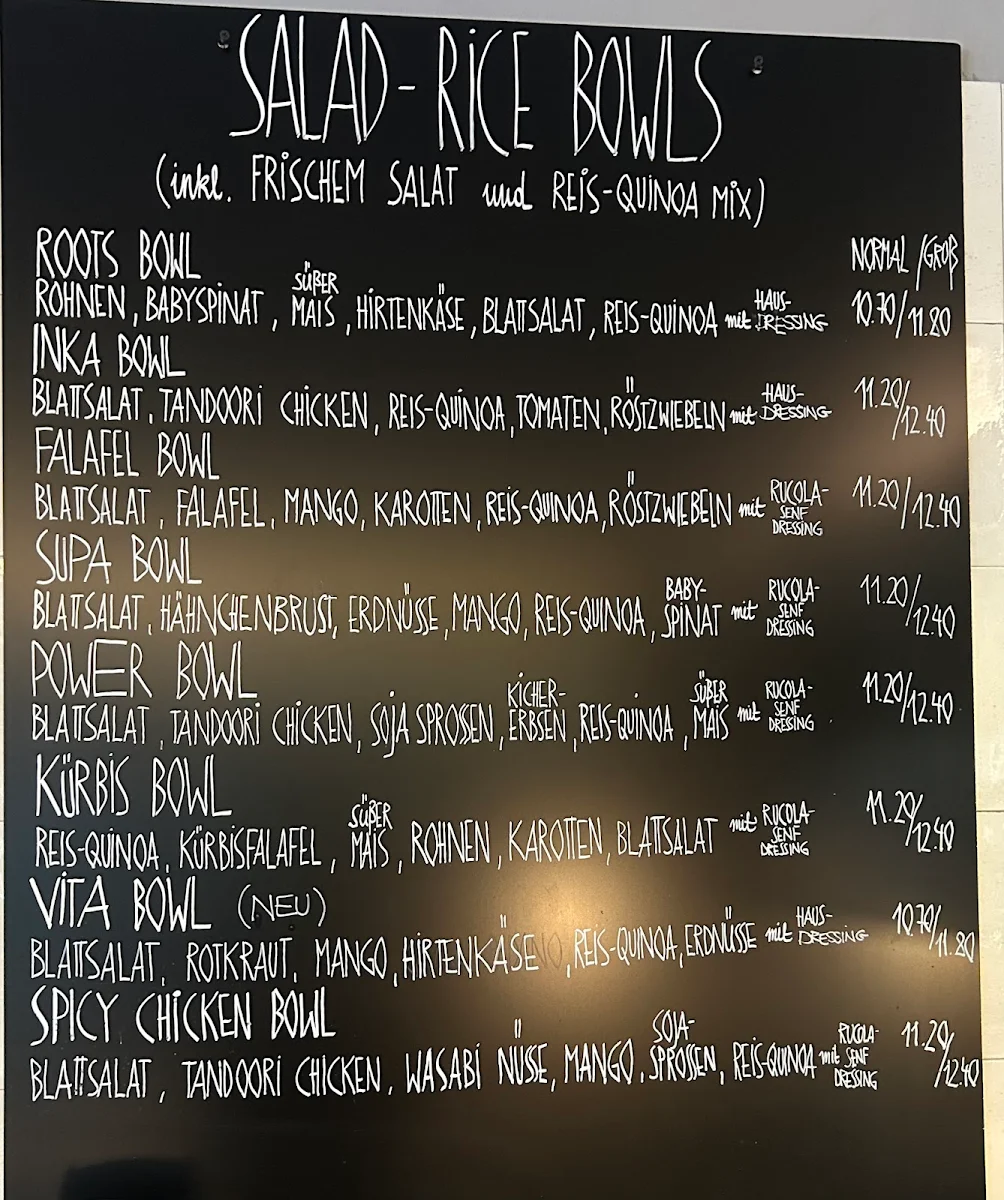 SALAD-RICE BOWLS
(inkl. FRISCHEM SALAT und REIS-QUINOA MIX)
ROOTS BOWL NORMAL /GROß
ROHNEN, BABYSPINAT, SÜßER MAIS, HIRTENKÄSE, BLATTSALAT, REIS-QUINOA mit HAUS-DRESSING 10.70/11.80
INKA BOWL
BLATTSALAT, TANDOORI CHICKEN, REIS-QUINOA, TOMATEN, RÖSTZWIEBELN mit HAUS-DRESSING 11.20/12.40
FALAFEL BOWL
BLATTSALAT, FALAFEL, MANGO, KAROTTEN, REIS-QUINOA, RÖSTZWIEBELN mit RUCOLA-SENF DRESSING 11.20/12.40
SUPA BOWL
BLATTSALAT, HÄHNCHENBRUST, ERDNÜSSE, MANGO, REIS-QUINOA, BABY-SPINAT mit RUCOLA-SENF DRESSING 11.20/12.40
POWER BOWL
BLATTSALAT, TANDOORI CHICKEN, SOJA SPROSSEN, KICHER-ERBSEN, REIS-QUINOA, SÜßER MAIS mit RUCOLA-SENF DRESSING 11.20/12.40
KÜRBIS BOWL
REIS-QUINOA, KÜRBISFALAFEL, SÜßER MAIS, ROHNEN, KAROTTEN, BLATTSALAT mit RUCOLA-SENF DRESSING 11.20/12.40
VITA BOWL (NEU)
BLATTSALAT, ROTKRAUT, MANGO, HIRTENKÄSE, REIS-QUINOA, ERDNÜSSE mit HAUS-DRESSING 10.70/11.80
SPICY CHICKEN BOWL
BLATTSALAT, TANDOORI CHICKEN, WASABI NÜSSE, MANGO, SOJA-SPROSSEN, REIS-QUINOA mit RUCOLA-SENF DRESSING 11.20/12.40